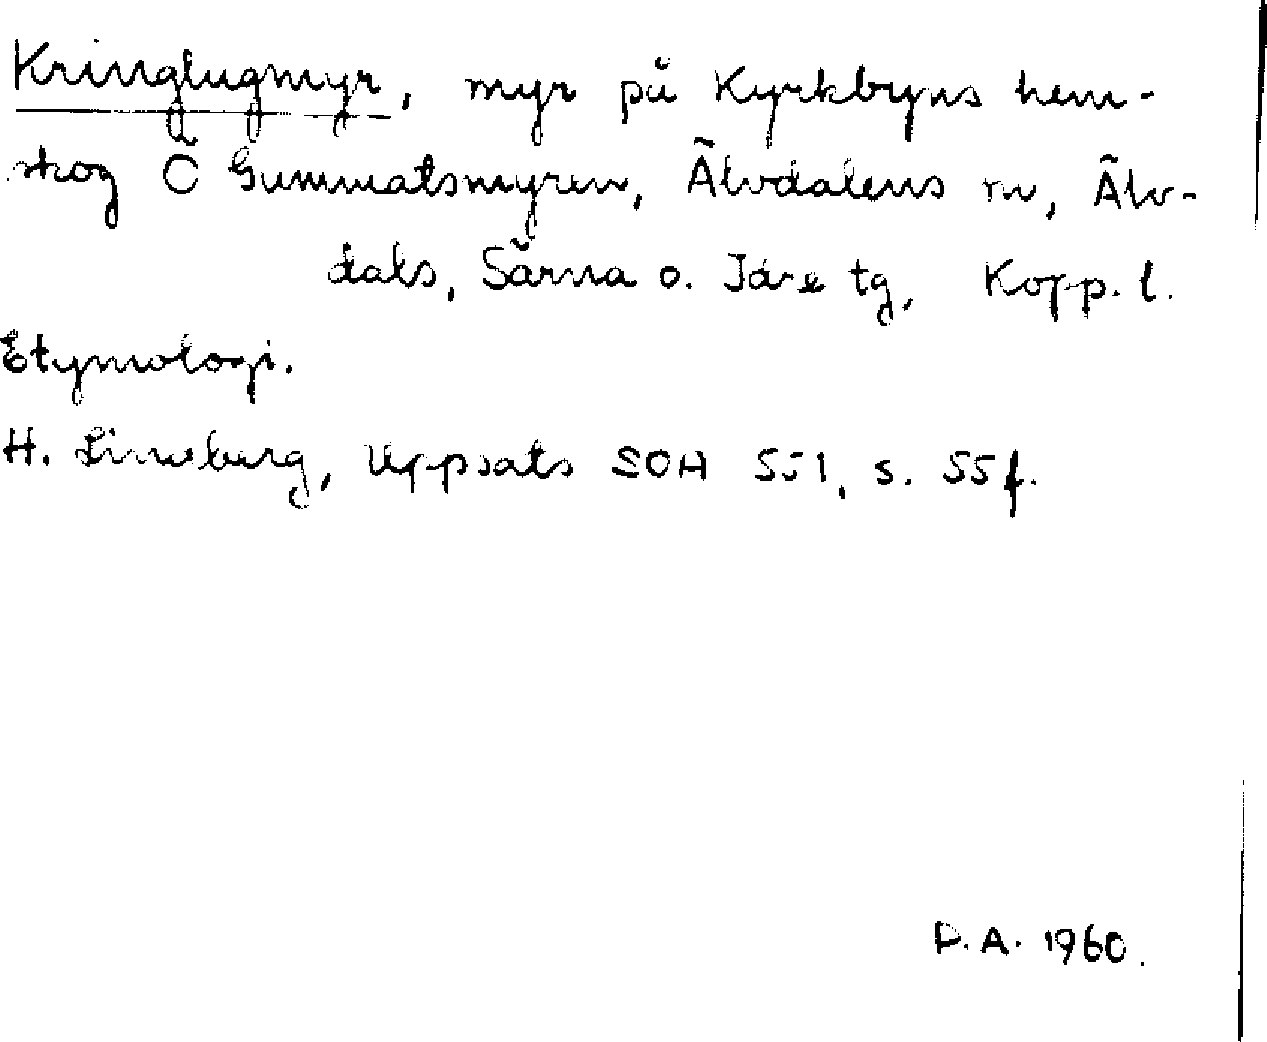 Kringlugmyr, myr på Kyrkbyns hem-
skog Ö Gummatsmyren, Älvdalens sn, Älv-
dals, Särna o. Idre tg, Kopp. l.
Etymologi.
H. Lindberg, Uppsats SOH 551, s. 55 f.
D.A. 1960.